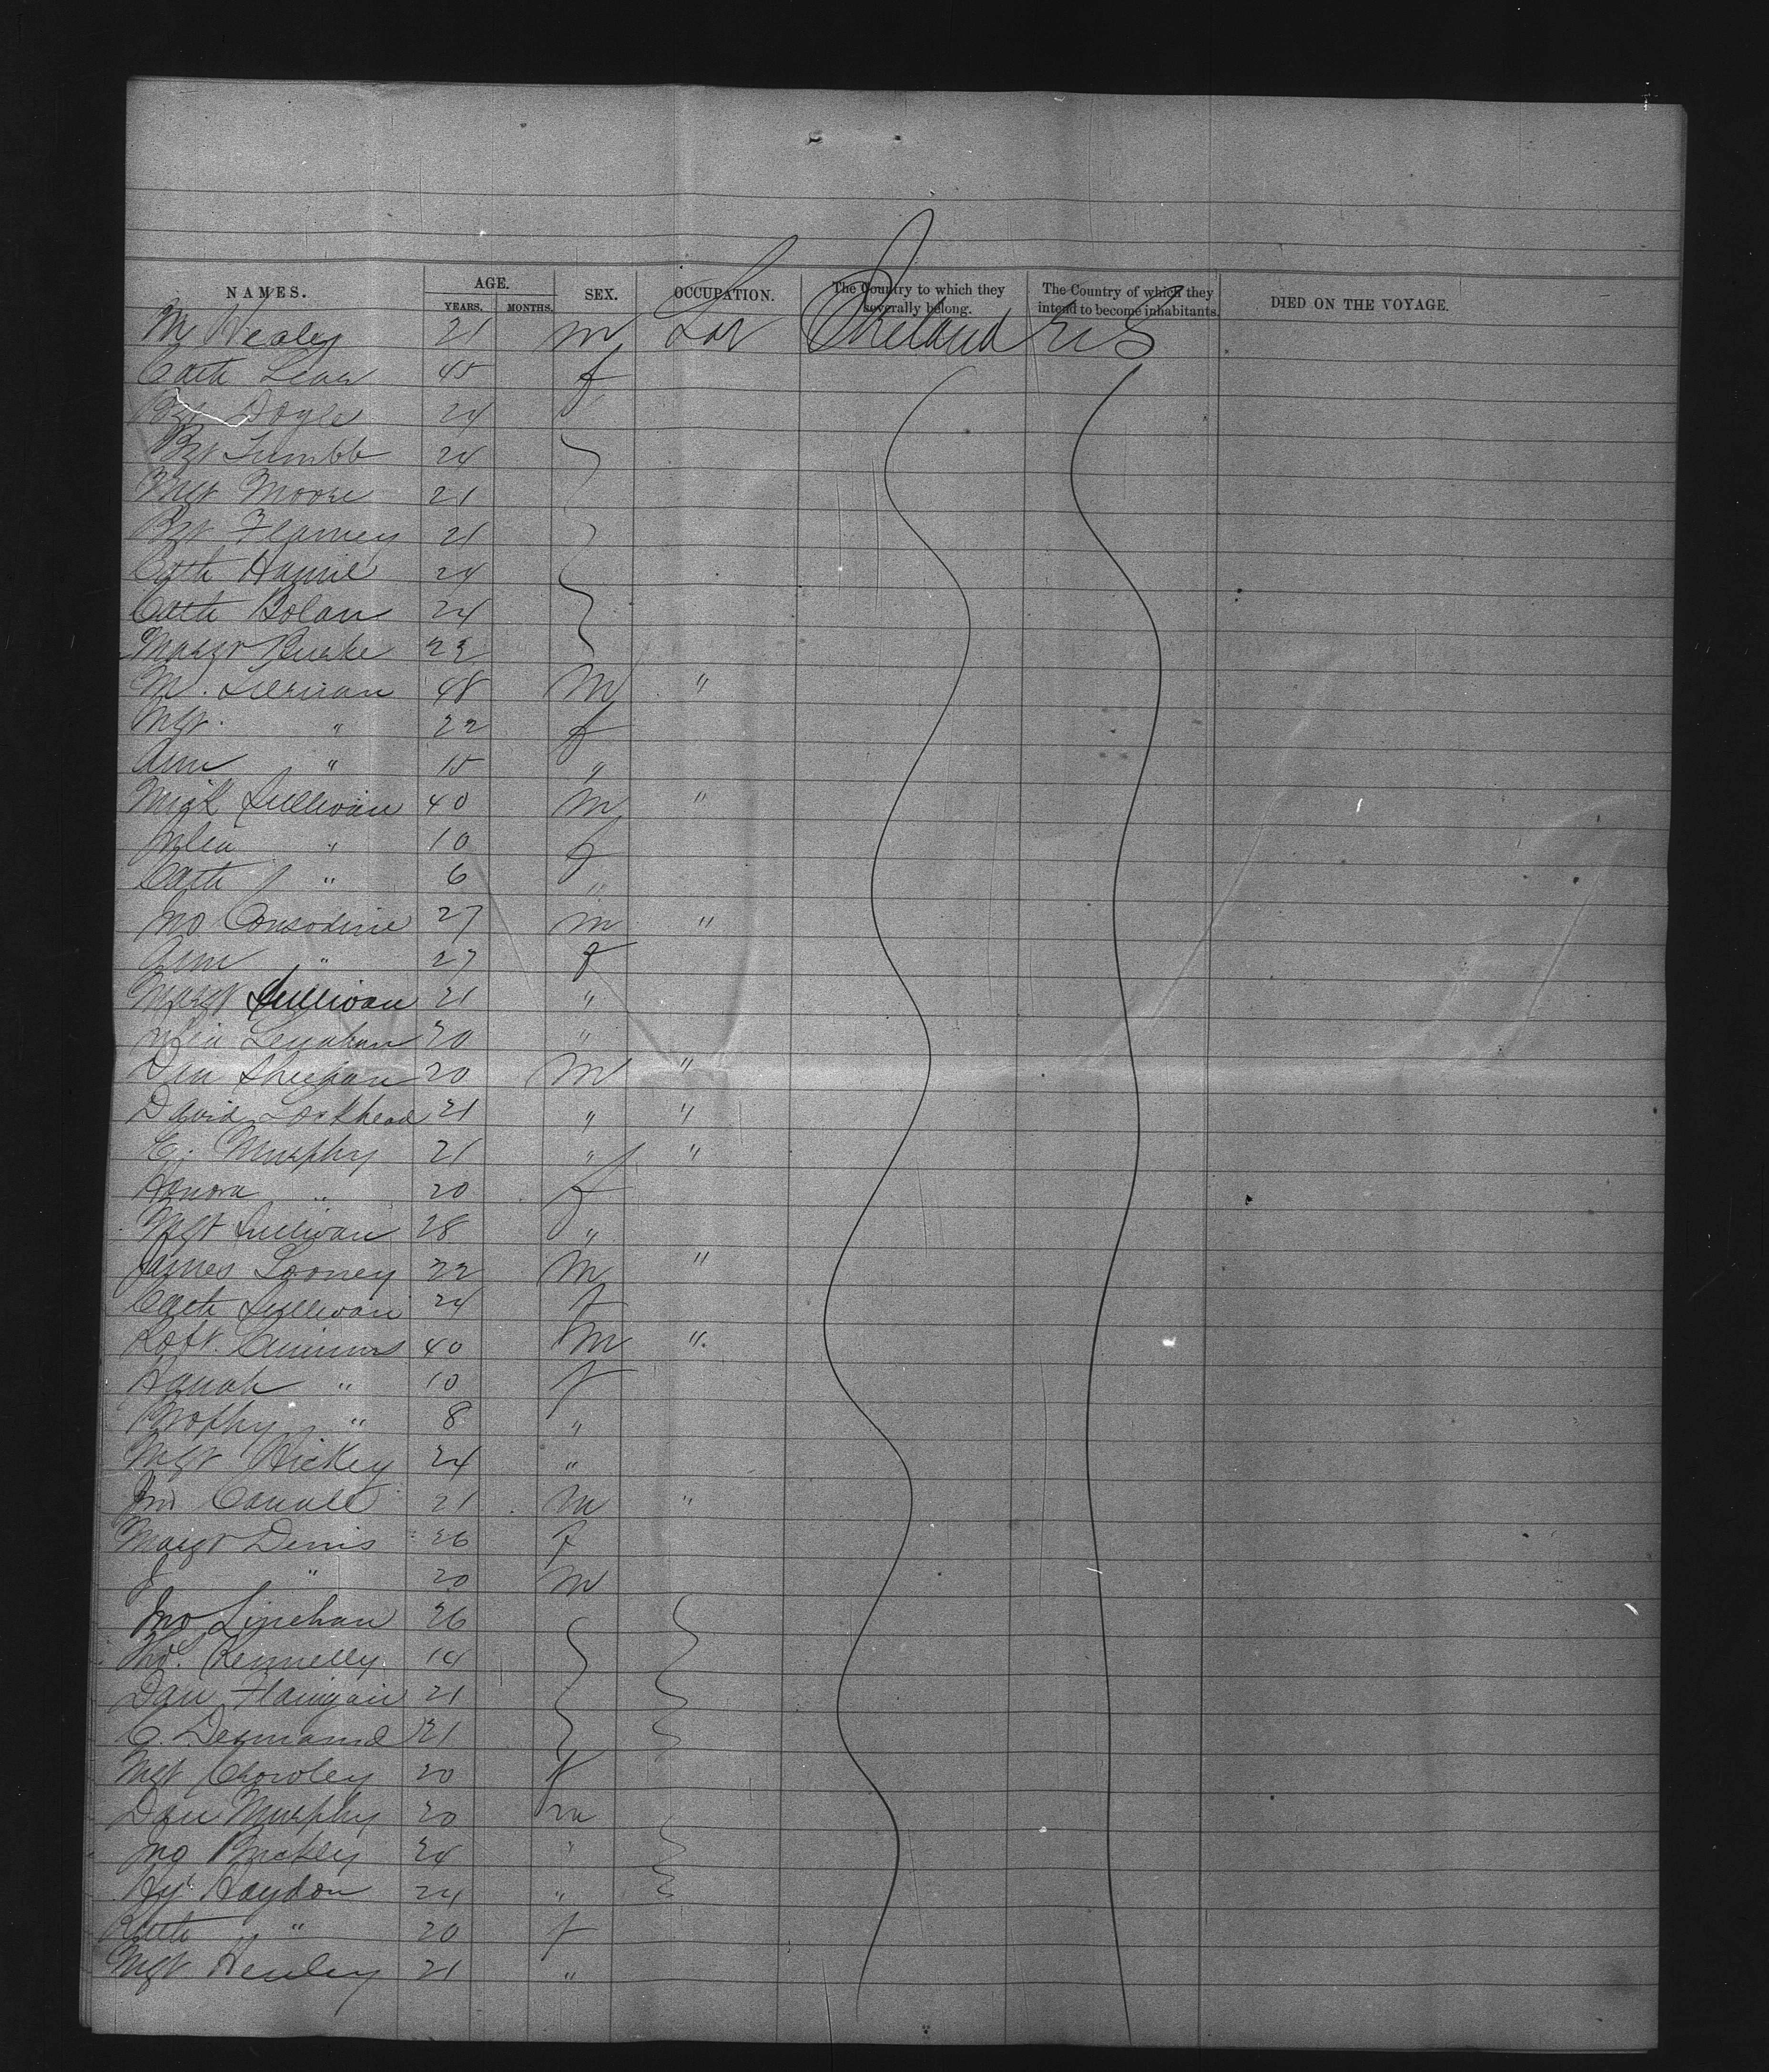 NAMES. AGE. SEX. OCCUPATION. The Country to which they severally belong. The Country of which they intend to become inhabitants. DIED ON THE VOYAGE.
YEARS. MONTHS.
M Healey 21 m Lar Ireland U S
Cath Leary 45 f
Bgt Doyle 24
Bgt 24
Mgt Moore 21
Bgt 21
Cath 24
Cath Bolan 24
Margt Burke 22
M. 48 M "
Mgt. " 22 f
Ann " 15 "
Mick Sullivan 40 m "
" 10 f
Cath " 6 "
Jno Consodine 27 m "
Ann " 27 f
Margt Sullivan 21 "
Lenahan 20 "
Dan Sheehan 20 M "
David Lockhead 21 " "
C. Murphy 21 " "
Honora " 20 f
Mgt Sullivan 28 "
James Looney 22 M "
Cath Sullivan 24 f
Robt. 40 M "
Hanah " 10 f
" 8 "
Mgt Hickey 24 "
Jno 21 M "
Margt Denis 26 f
J " 20 M
Jno Linehan 26
Tho. Kennelly 14
Dan Flanigan 21
C. Desmond 21
Mgt Crowley 20 f
Dan Murphy 20 m
Jno Buckley 24 "
Hy Haydon 24 "
Kate " 20 f
Mgt. Henley 21 "